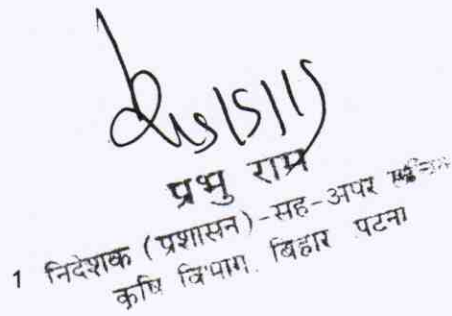 प्रभु राम
1 निदेशक (प्रशासन)-सह-अपर
कृषि विभाग. बिहार पटना